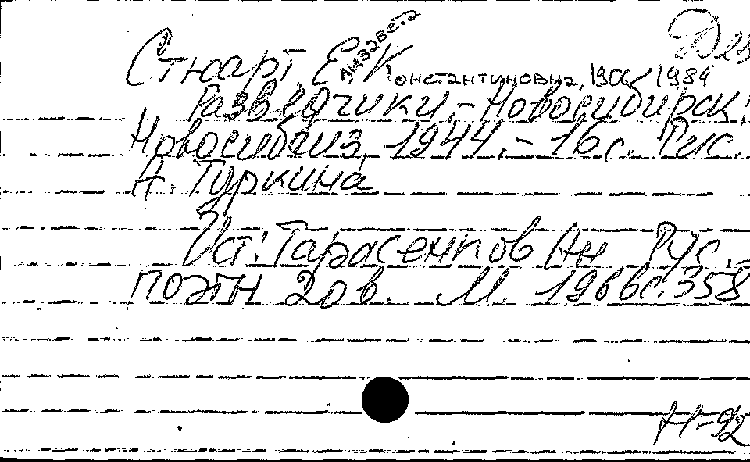 Дез
Стюарт Елизавета Константиновна, 1906-1984
Разведчики.- Новосибирск:
Новосибгиз, 1944.- 16 с. Рис.
А. Туркина
Ист: Тарасенков Ан Рус.
поэты 20 в. М. 1966 с. 358
Н-92